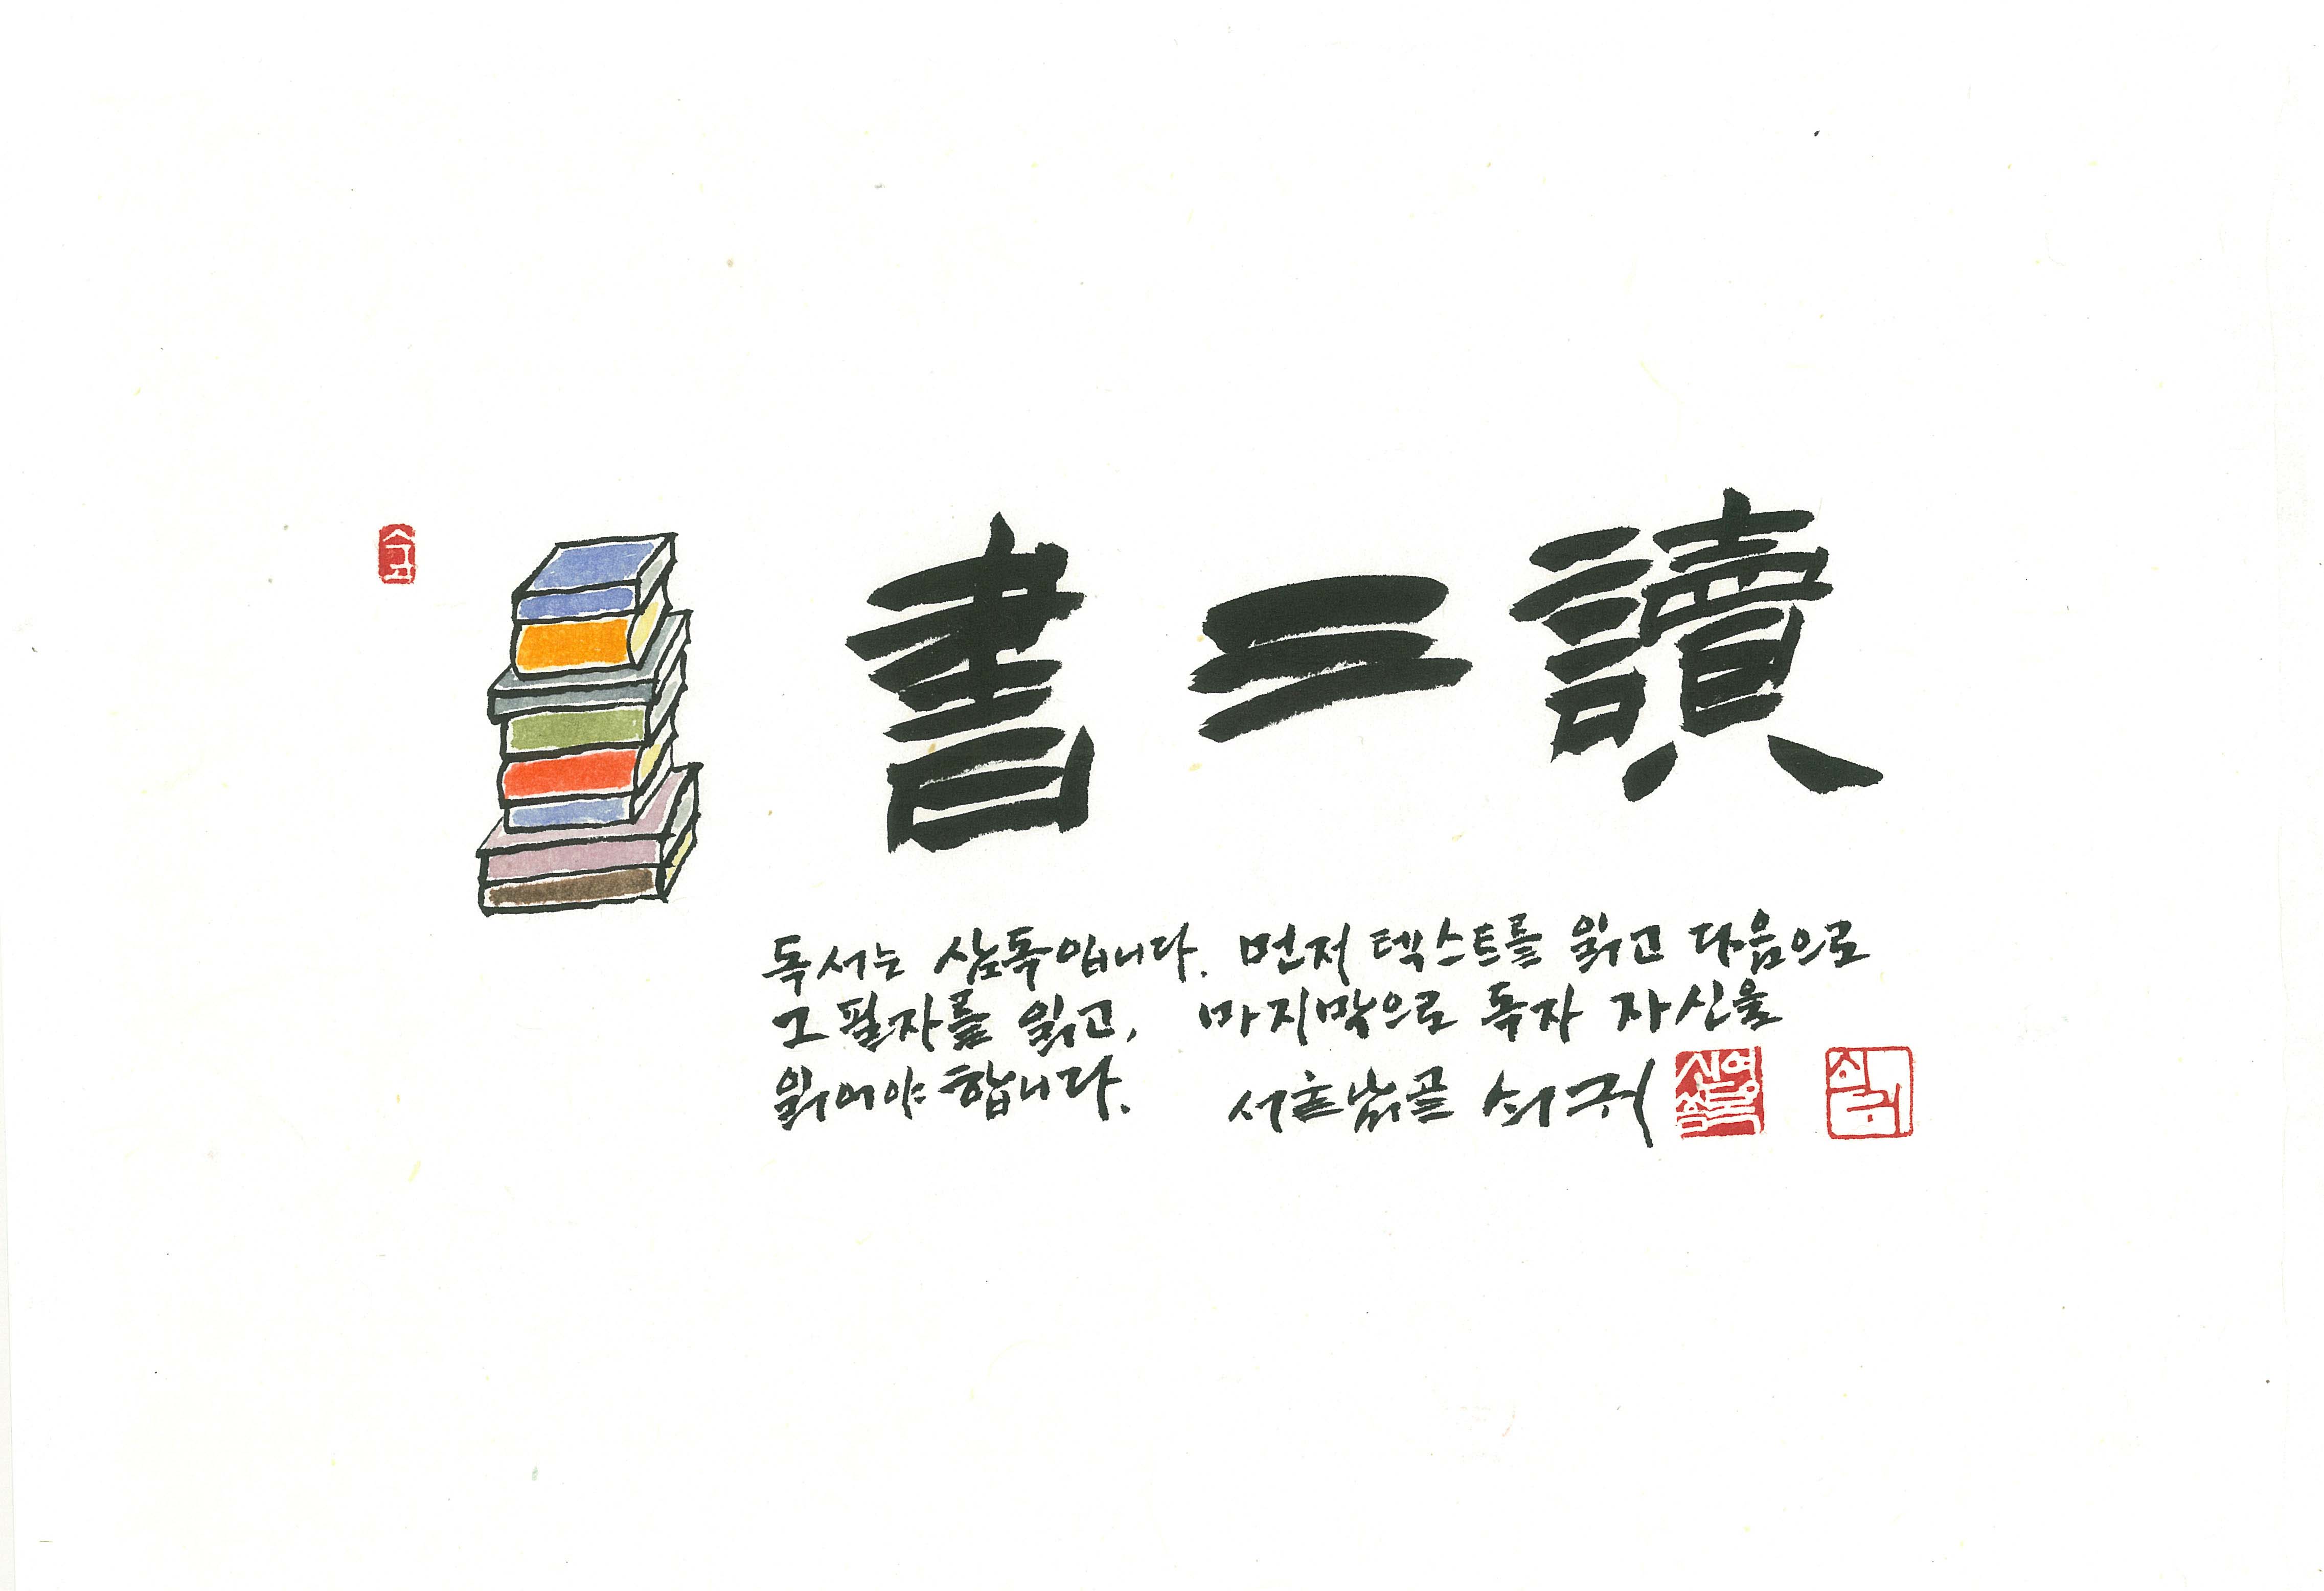 書三讀
독서는 삼독입니다. 먼저 텍스트를 읽고 다음으로
그 필자를 읽고, 마지막으로 독자 자신을
읽어야 합니다. 서호낡골 쇠귀
쇠귀